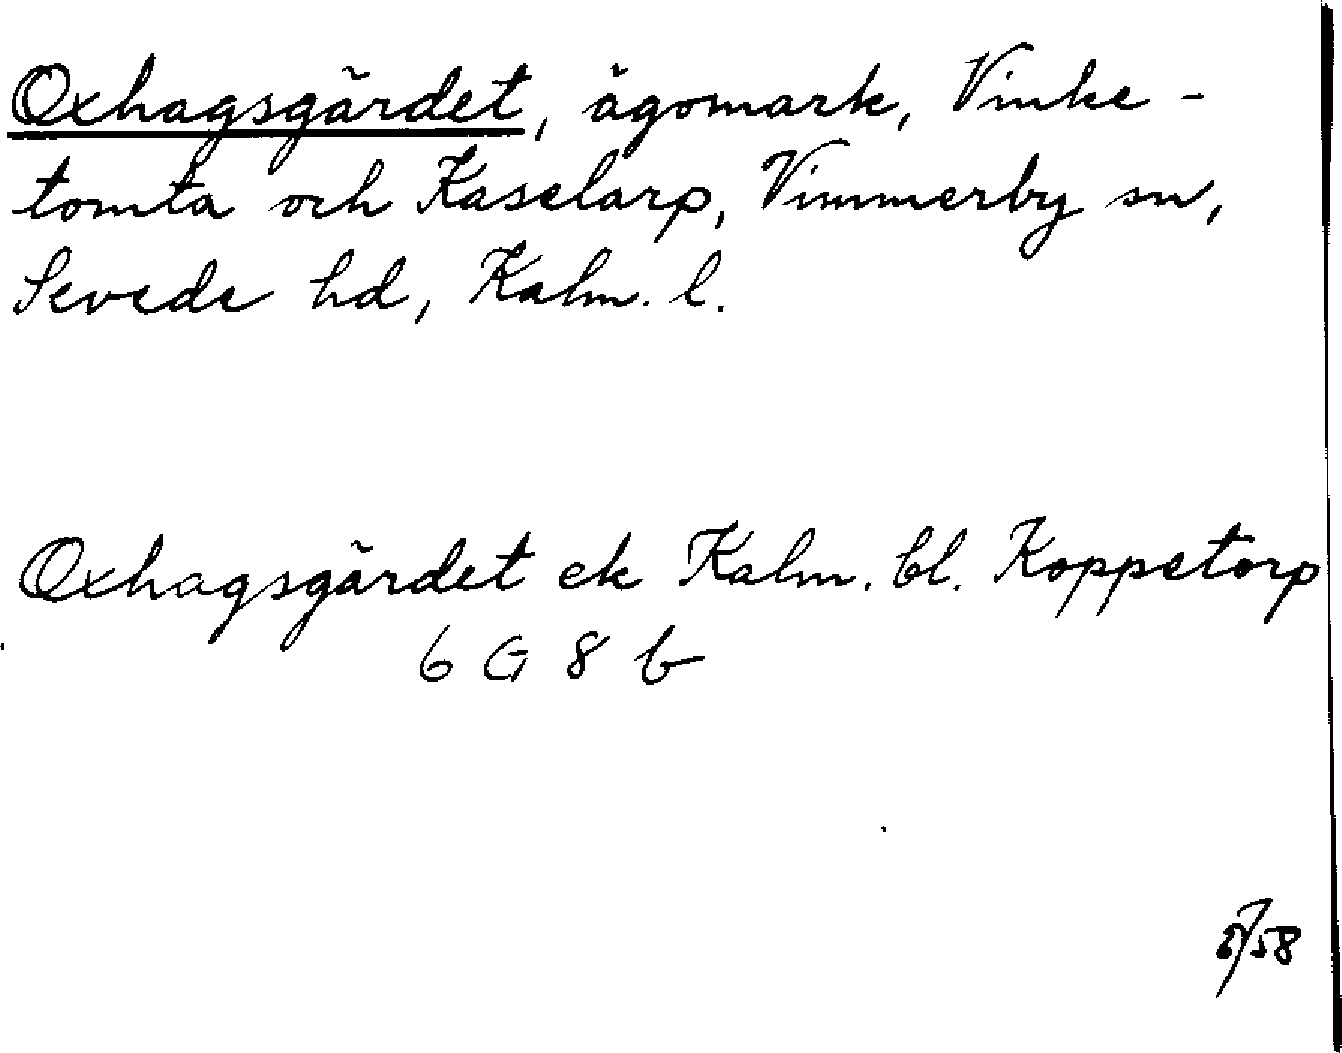 Oxhagsgärdet, ägomark, Vinke-
tomta och Kaselarp, Vimmerby sn,
Sevede hd, Kalm. l.
Oxhagsgärdet ek Kalm. bl. Koppetorp
6 G 8 b
58